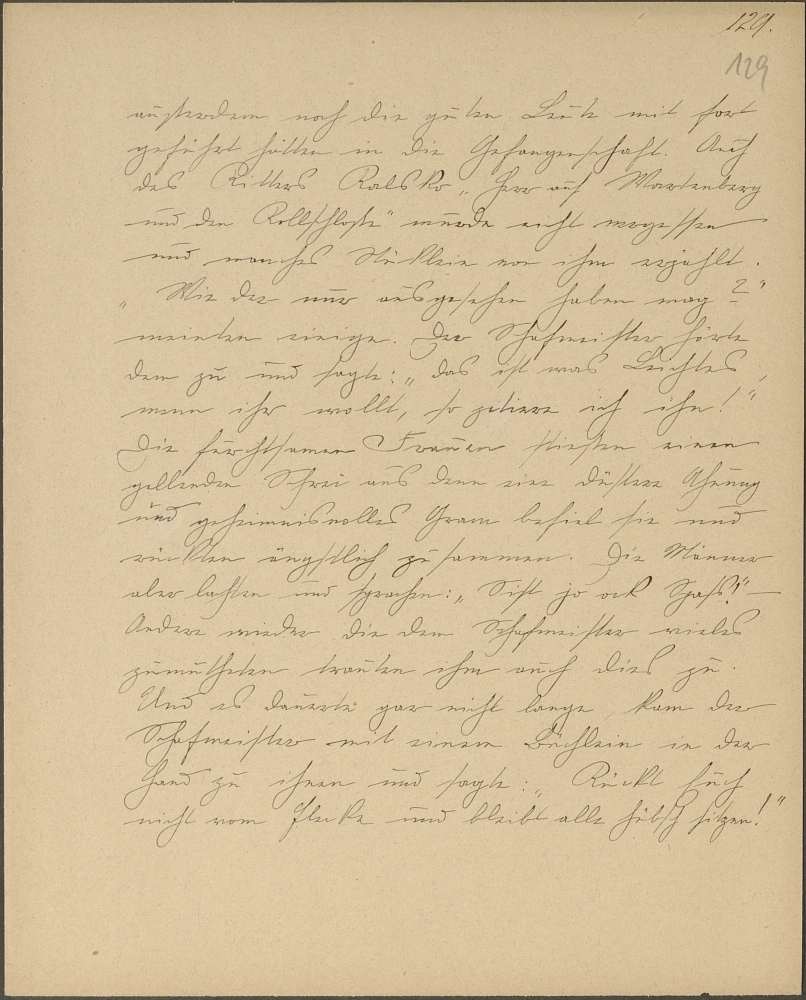 129.
129
außerdem noch die guten Leute mit fort
geführt hätten in die Gefangenschaft. Auch
des Ritters Ralsko „Herr auf Wartenberg
und den Rollschloße" wurde nicht vergessen
und manches Stücklein von ihm erzählt.
„Wie der nur ausgesehen haben mag?"
meinten einige. Der Schafmeister hörte
dem zu und sagte: „das ist was Leichtes,
wenn ihr wollt, so zitiere ich ihn!"
Die furchtsamen Frauen stießen einen
gellenden Schrei aus denn eine düstere Ahnung
und geheimnisvolles Gram befiel sie und
rückten ängstlich zusammen. Die Männer
aber lachten und sprachen: „Sist jo ock Spaß!" –
Andere wieder die dem Schafmeister vieles
zumutheten trauten ihm auch dies zu.
Und es dauerte gar nicht lange, kam der
Schafmeister mit einem Büchlein in der
Hand zu ihnen und sagte: „Rückt Euch
nicht vom Flecke und bleibt alle hübsch sitzen!"